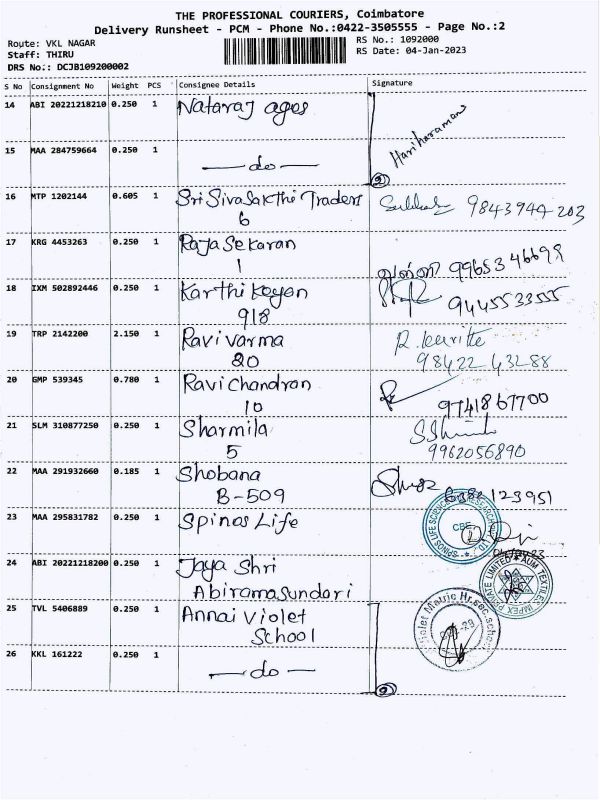 THE PROFESSIONAL COURIERS, Coimbatore
Delivery Runsheet - PCM - Phone No.:0422-3505555 - Page No.:2
Route: VKL NAGAR
Staff: THIRU
DRS No.: DCJB109200002
RS No.: 1092000
RS Date: 04-Jan-2023
S No Consignment No Weight PCS Consignee Details Signature
14 ABI 20221218210 0.250 1 Nataraj
Hariharaman
15 MAA 284759664 0.250 1 — do —
2
16 MTP 1202144 0.605 1 Sri Sivasakthi Traders
6
9843944203
17 KRG 4453263 0.250 1 Rajasekaran
1
9965346699
18 IXM 502892446 0.250 1 Karthikeyan
918
9445533555
19 TRP 2142200 2.150 1 Ravivarma
20
98422 43288
20 GMP 539345 0.780 1 Ravichandran
10
9741867700
21 SLM 310877250 0.250 1 Sharmila
5
9962056890
22 MAA 291932660 0.185 1 Shobana
B-509
23 MAA 295831782 0.250 1 Spinos Life
CBE
24 ABI 20221218200 0.250 1 Jaya Shri
Abiramasundari
AUM TEXTILES IMPEX PRIVATE LIMITED
25 TVL 5406889 0.250 1 Annai Violet
School
Violet Matric Hr.sec.school
26 KKL 161222 0.250 1 — do —
2